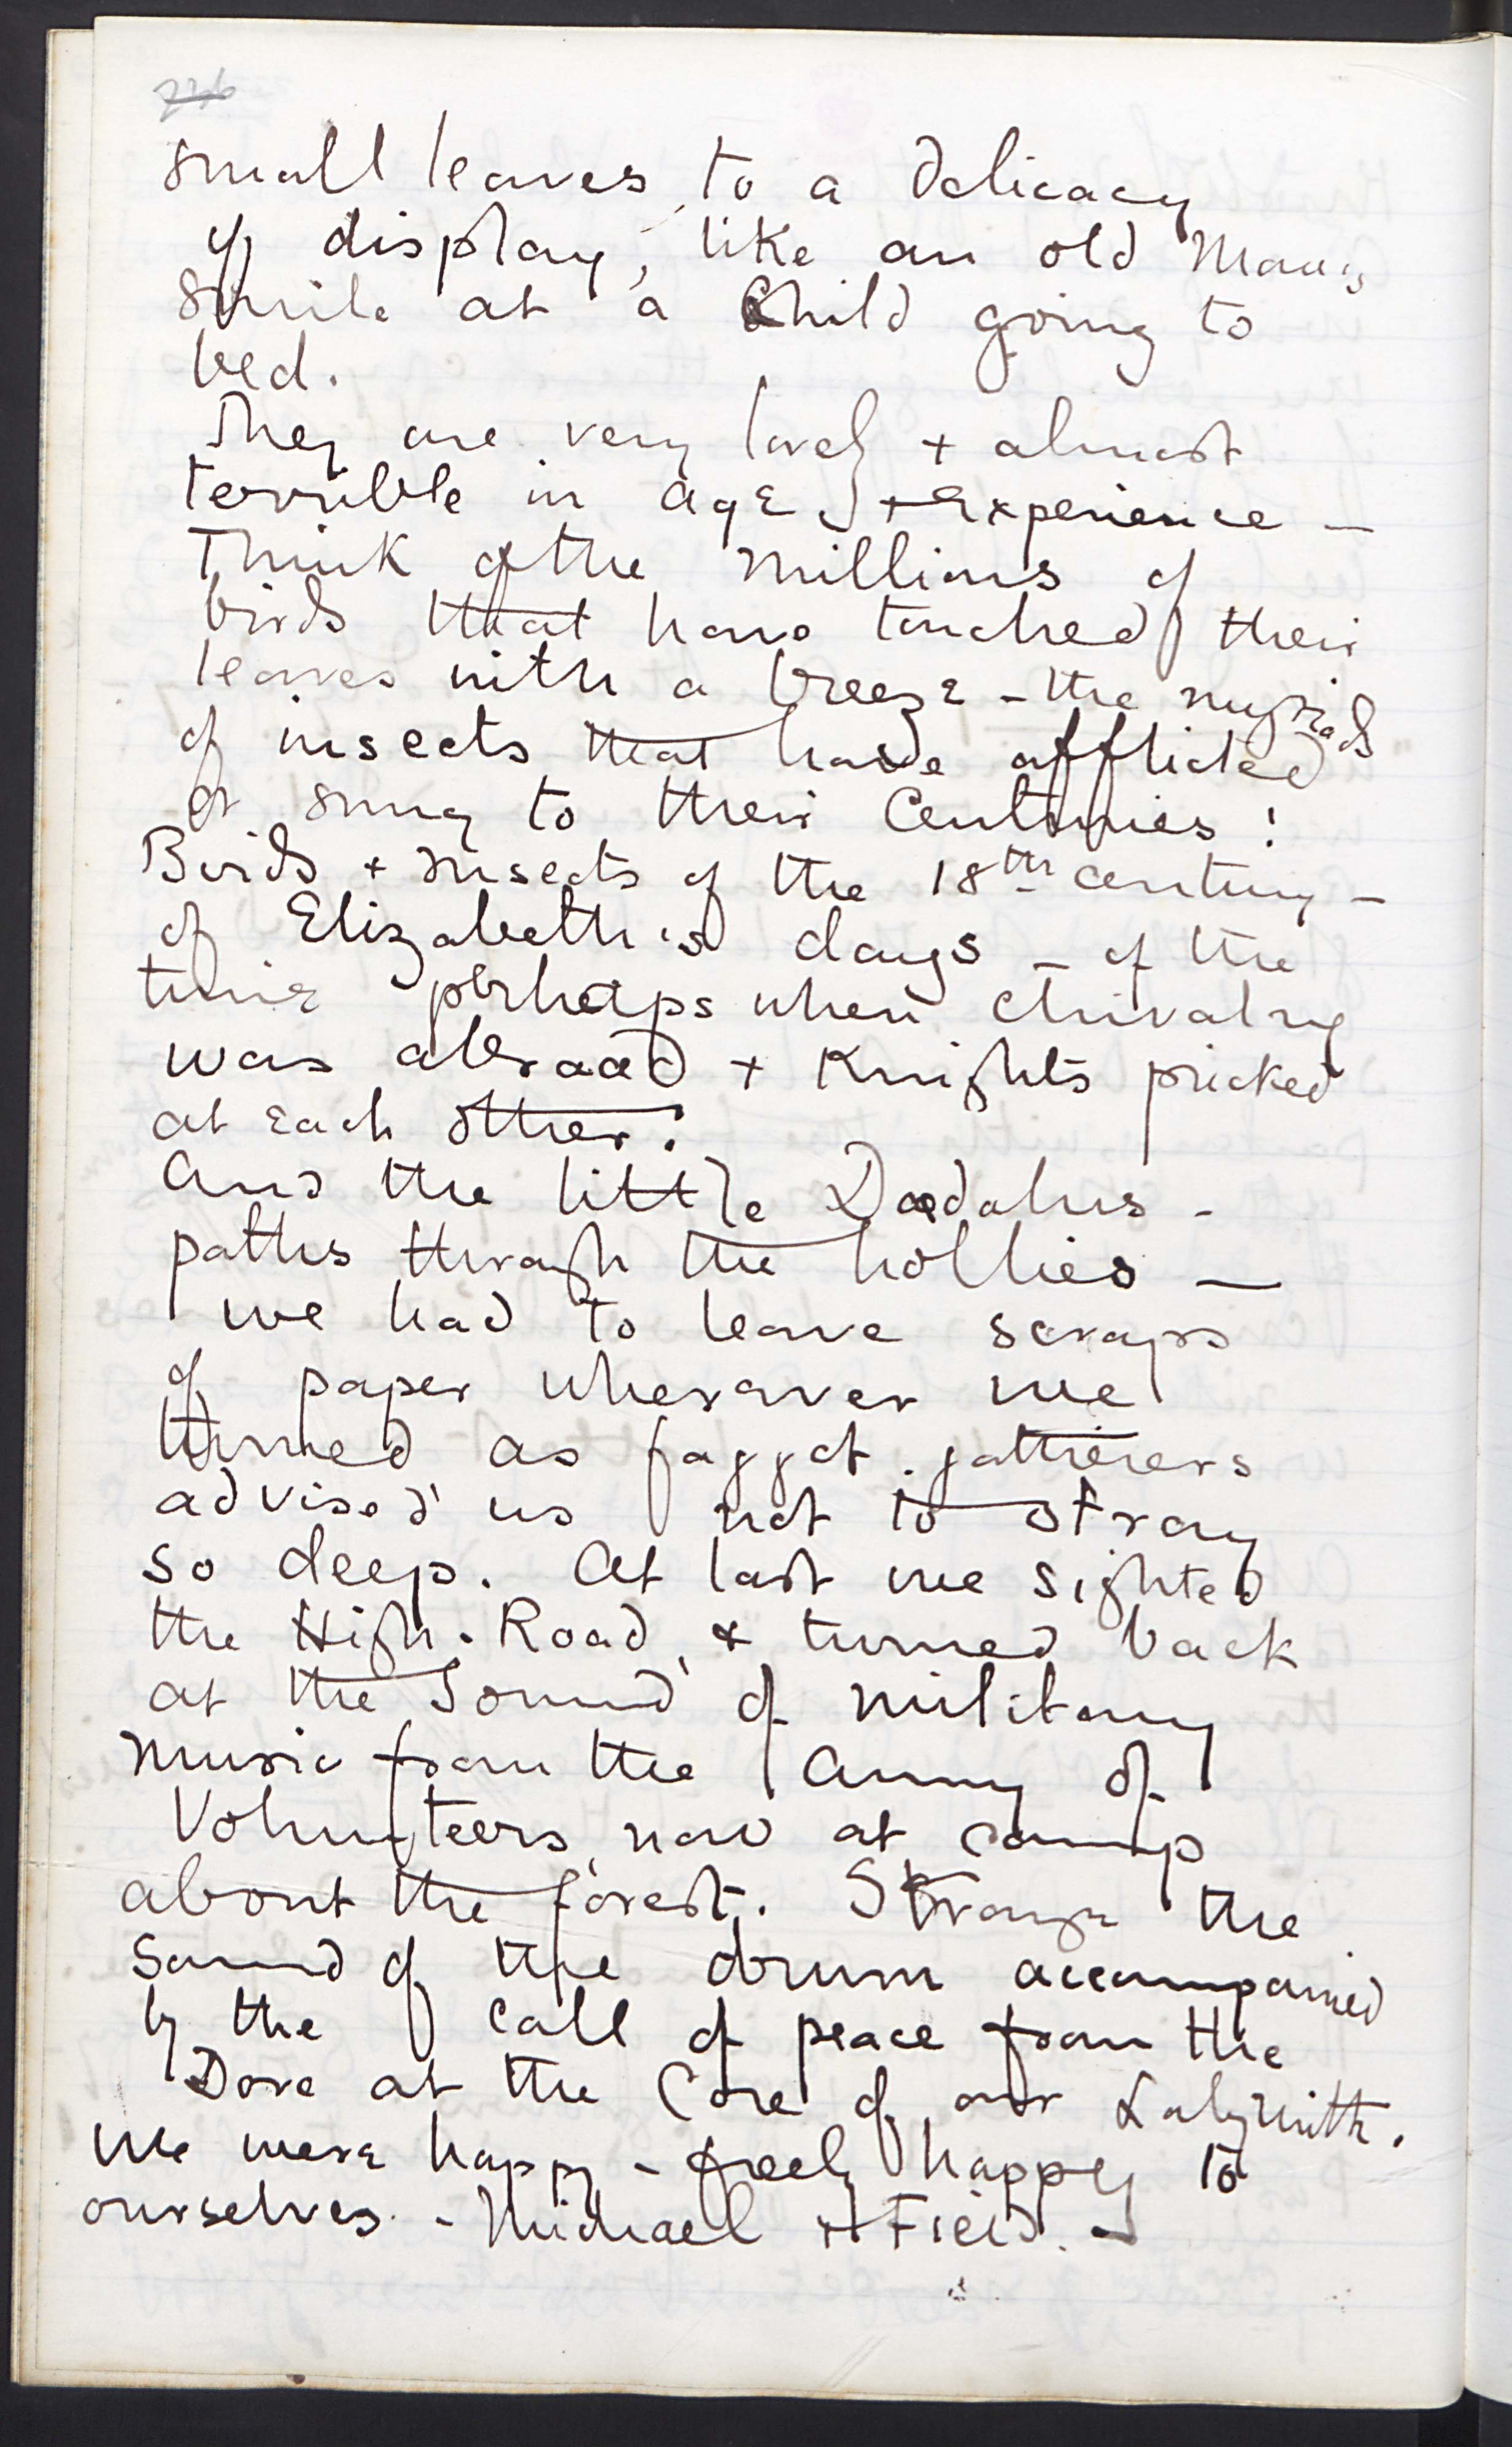 small leaves to a delicacy
of display, like an old man's
smile at a Child going to
bed.
They are very lovely + almost
terrible in age + Experience —
Think of the millions of
birds that have touched their
leaves with a breeze — the myriads
of insects that have afflicted
or sung to their Centuries!
Birds + insects of the 18th century —
of Elizabeth's days — of the
time perhaps when chivalry
was abroad + Knights pricked
at each other!
And the little Dædalus -
paths through the hollies —
we had to leave scraps
of paper wherever we
turned as faggot-gatherers
advised us not to stray
so deep. At last we sighted
the High-Road, & turned back
at the sound of military
music from the Army of
Volunteers, now at camp
about the forest. Strange the
sound of the drum accompanied
by the call of peace from the
Dove at the Core of our Labyrinth.
We were happy - freely happy to
ourselves. - Michael + Field. -